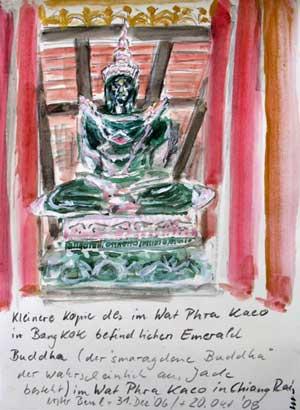 Kleinere Kopie des im Wat Phra Kaeo
in Bangkok befindlichen Emerald
Buddha (der "smaragdene Buddha"
der wahrscheinlich aus Jade
besteht) im Wat Phra Kaeo in Chiang Rai,
31. Dez '06 / + 20. Okt '09